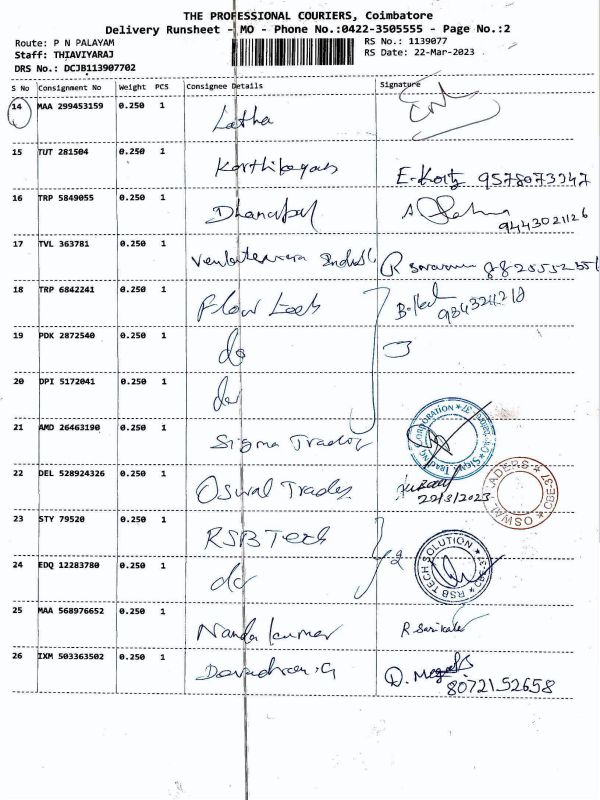 THE PROFESSIONAL COURIERS, Coimbatore
Delivery Runsheet - MO - Phone No.:0422-3505555 - Page No.:2
Route: P N PALAYAM
RS No.: 1139077
Staff: THIAVIYARAJ
RS Date: 22-Mar-2023
DRS No.: DCJB113907702
S No Consignment No Weight PCS Consignee Details Signature
14 MAA 299453159 0.250 1 Latha
15 TUT 281504 0.250 1 Karthikeyan
16 TRP 5849055 0.250 1 Dhanapal 9443021126
17 TVL 363781 0.250 1
18 TRP 6842241 0.250 1 Flow Tech
19 PDK 2872540 0.250 1 do 3
20 DPI 5172041 0.250 1 do
21 AMD 26463190 0.250 1 Sigma Trador
22 DEL 528924326 0.250 1 Oswal Trades 22/3/2023
OSWAL TRADERS CBE-37
23 STY 79520 0.250 1 RSB Tech 2
RSB TECH SOLUTION CBE-37
24 EDQ 12283780 0.250 1 do
25 MAA 568976652 0.250 1 Nanda kumar
26 IXM 503363502 0.250 1 80721 52658